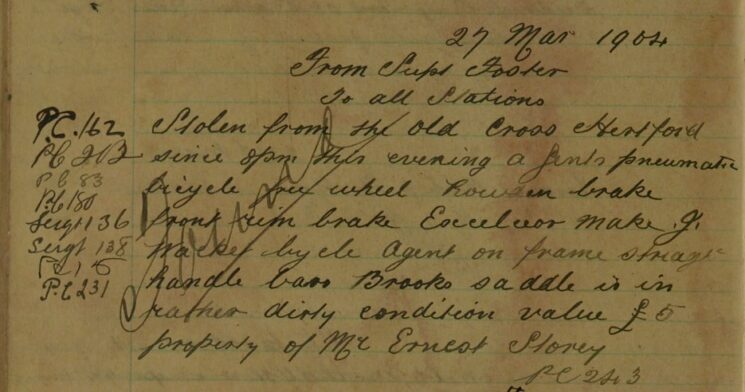 27 Mar 1904
From Supt Foster
To all Stations
P.C. 162 Stolen from the Old Cross Hertford
PC 202 since 8pm this evening a gents pneumatic
PC 83 bicycle free wheel Bowden brake
PC 180 front rim brake Excelsior make J.
Sergt 136 bycle Agent on frame
Sergt 138 handle bars Brooks saddle is in
rather dirty condition value £5
P.C 231 property of Mr Ernest Storey
PC 243